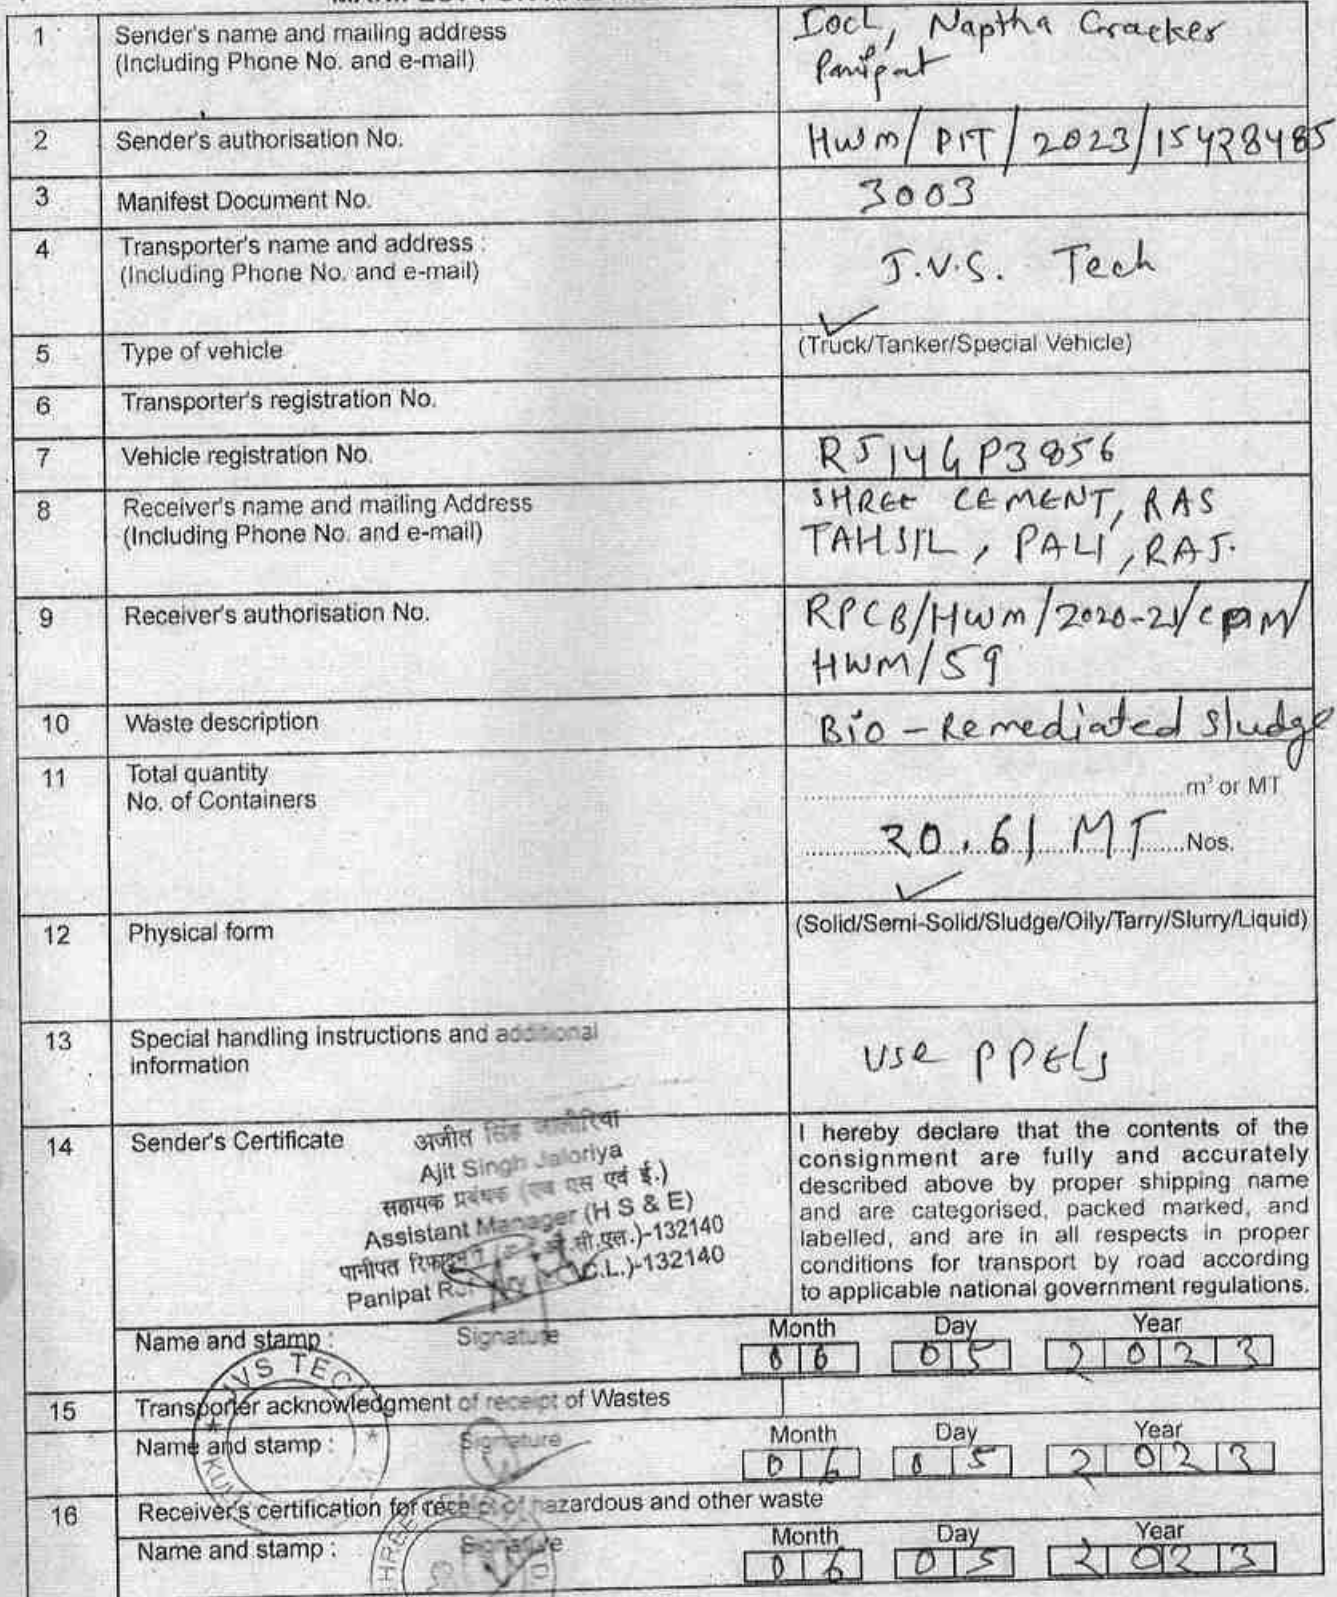 1 Sender's name and mailing address
(Including Phone No. and e-mail)
IOCL, Naptha Cracker
Panipat
2 Sender's authorisation No.
HWM/PIT/2023/15428485
3 Manifest Document No.
3003
4 Transporter's name and address :
(Including Phone No. and e-mail)
J.V.S. Tech
5 Type of vehicle
(Truck/Tanker/Special Vehicle)
6 Transporter's registration No.
7 Vehicle registration No.
RJ14GP3856
8 Receiver's name and mailing Address
(Including Phone No. and e-mail)
SHREE CEMENT, RAS
TAHSIL, PALI, RAJ.
9 Receiver's authorisation No.
RPCB/HWM/2020-21/CPM/
HWM/59
10 Waste description
Bio-Remediated Sludge
11 Total quantity
No. of Containers
m³ or MT
20.61 MT Nos.
12 Physical form
(Solid/Semi-Solid/Sludge/Oily/Tarry/Slurry/Liquid)
13 Special handling instructions and additional
information
use PPE's
14 Sender's Certificate
अजीत सिंह जालौरिया
Ajit Singh Jaloriya
सहायक प्रबंधक (एच एस एवं ई.)
Assistant Manager (H S & E)
पानीपत सी.एल.)-132140
Panipat C.L.)-132140
I hereby declare that the contents of the
consignment are fully and accurately
described above by proper shipping name
and are categorised, packed marked, and
labelled, and are in all respects in proper
conditions for transport by road according
to applicable national government regulations.
Name and stamp : Signature
Month Day Year
06 05 2023
JVS TEC
15 Transporter acknowledgment of receipt of Wastes
Name and stamp : Signature
Month Day Year
06 05 2023
16 Receiver's certification for receipt of hazardous and other waste
Name and stamp : Signature
Month Day Year
06 05 2023